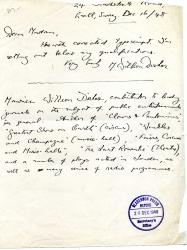 Dec 16/48
Dear Madam,
Herewith corrected typescript. I'm
setting out below my qualifications.
M. Willson Disher
Maurice Willson Disher, contributor to
journals on the subject of public entertainment
in general. Author of "Clowns & Pantomimes",
"Greatest Show on Earth" (circus), "Winkles
and Champagne" (music hall), "Fairs, Circuses
and Music Halls", "The Last Romantic" (theatre),
and a number of plays acted in London, as
well as many series of radio programmes.
20 DEC 1948